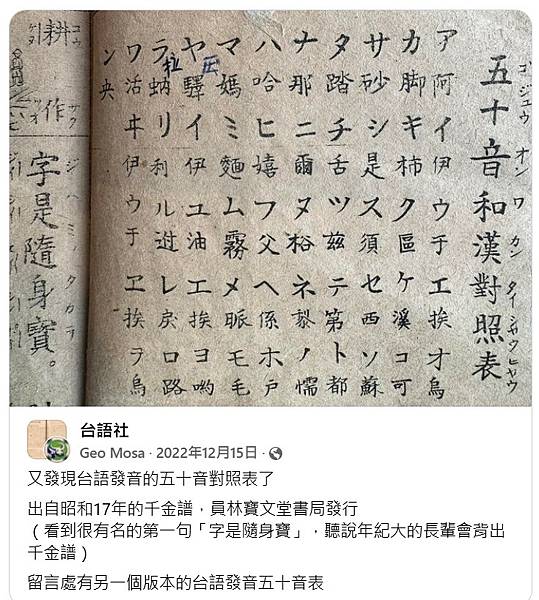 五十音和漢對照表
ゴ ジュウ オン ワ カン タイ シャウ ヒヤウ
ア阿 イ伊 ウ于 エ挨 オ烏
カ脚 キ柿 ク區 ケ溪 コ可
サ砂 シ是 ス須 セ西 ソ蘇
タ踏 チ舌 ツ茲 テ第 ト都
ナ那 ニ爾 ヌ ネ ノ懦
ハ哈 ヒ嬉 フ父 ヘ係 ホ戶
マ媽 ミ麵 ム霧 メ脈 モ毛
ヤ驛 イ伊 ユ油 エ挨 ヨ喲
ラ蚋 拉 リ利 ル レ戾 ロ路
ワ活 ヰ伊 ウ于 ヱ挨 ヲ烏
ン央
耕作
コウ サク
字是隨身寶。
ジ ハ ミ ノ タカラ
台語社
Geo Mosa · 2022年12月15日 ·
又發現台語發音的五十音對照表了
出自昭和17年的千金譜，員林寶文堂書局發行
（看到很有名的第一句「字是隨身寶」，聽說年紀大的長輩會背出
千金譜）
留言處有另一個版本的台語發音五十音表